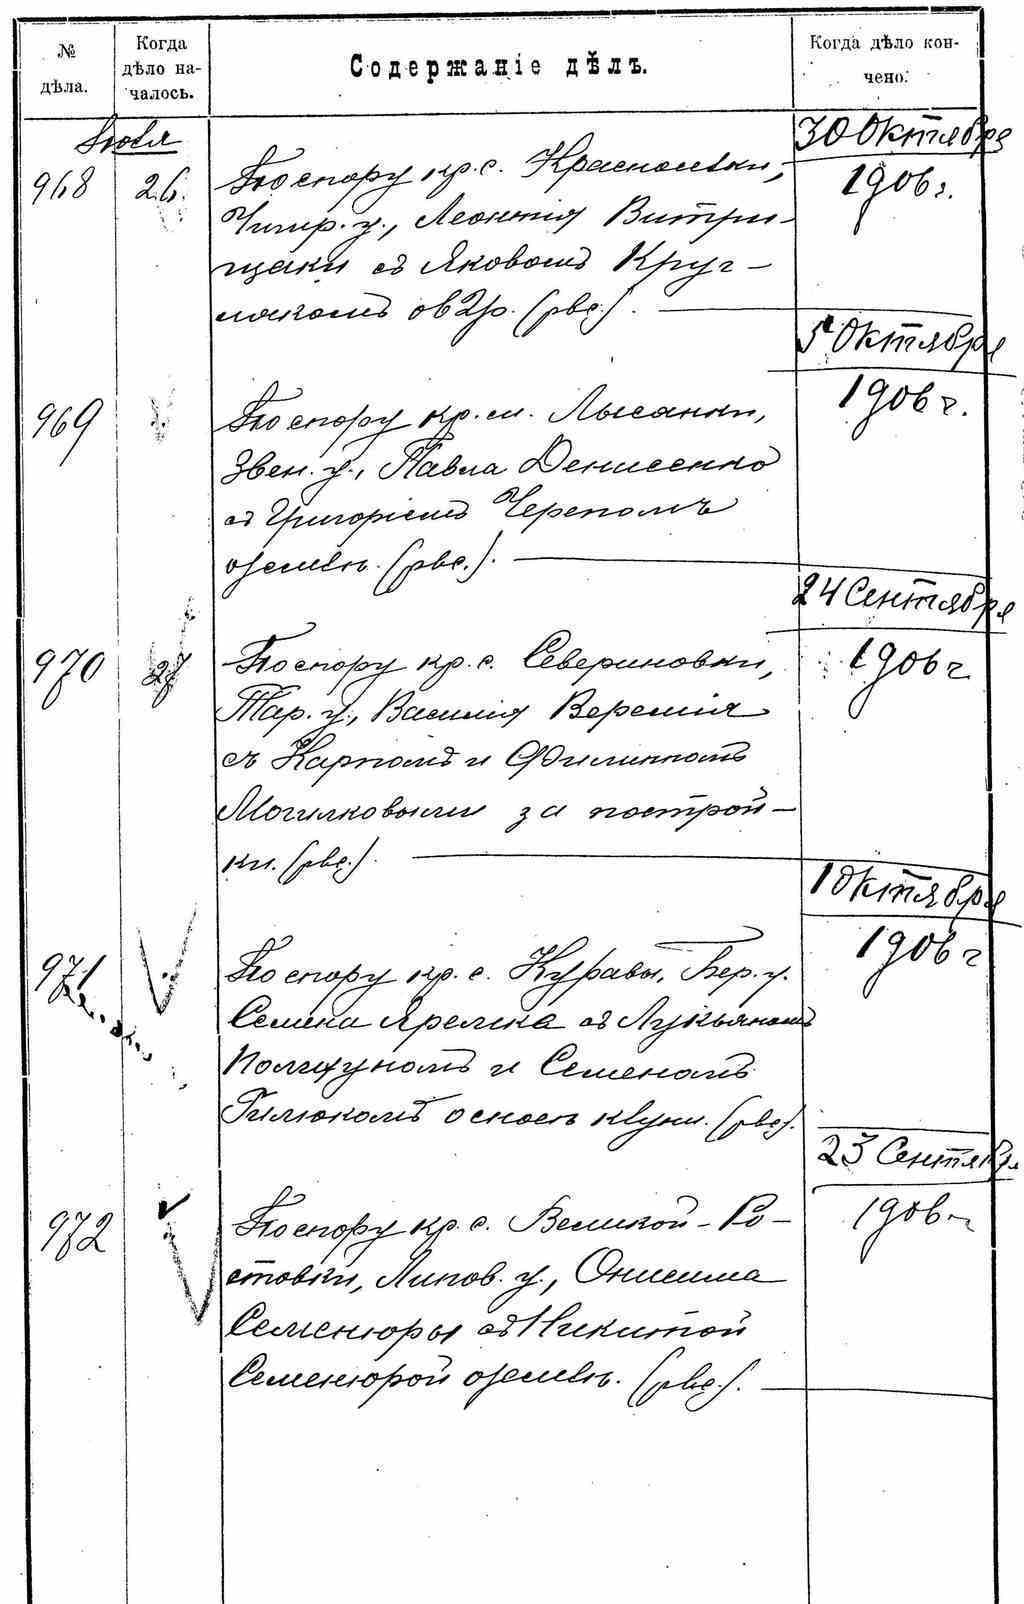 № дѣла.
Когда дѣло на-
чалось.
Содержаніе дѣлъ.
Когда дѣло кон-
чено.
Іюля
968
26.
По спору кр. с. Красноселки,
Чигир. у., Леонтія Витри-
щаки съ Яковомъ Круг-
лякомъ о 82 р. (рвс.).
30 Октября
1906 г.
969
По спору кр. м. Лысянки,
Звен. у., Павла Денисенко
съ Григоріемъ Черепомъ
о землѣ. (рвс.).
5 Октября
1906 г.
970
27
По спору кр. с. Севериновки,
Тар. у., Василія Веремія
съ Карпомъ и Филиппомъ
Могилковыми за построй-
ки. (рвс.).
24 Сентября
1906 г
971
По спору кр. с. Журавы, Бер. у.
Семена Яремка съ Лукьяномъ
и Семеномъ
Гилюкомъ о сносѣ клуни. (рвс.).
1 Октября
1906 г
972
По спору кр. с. Великой-Ро-
стовки, Липов. у., Онисима
Семенюры съ Никитой
Семенюрой о землѣ. (рвс.).
23 Сентября
1906 г